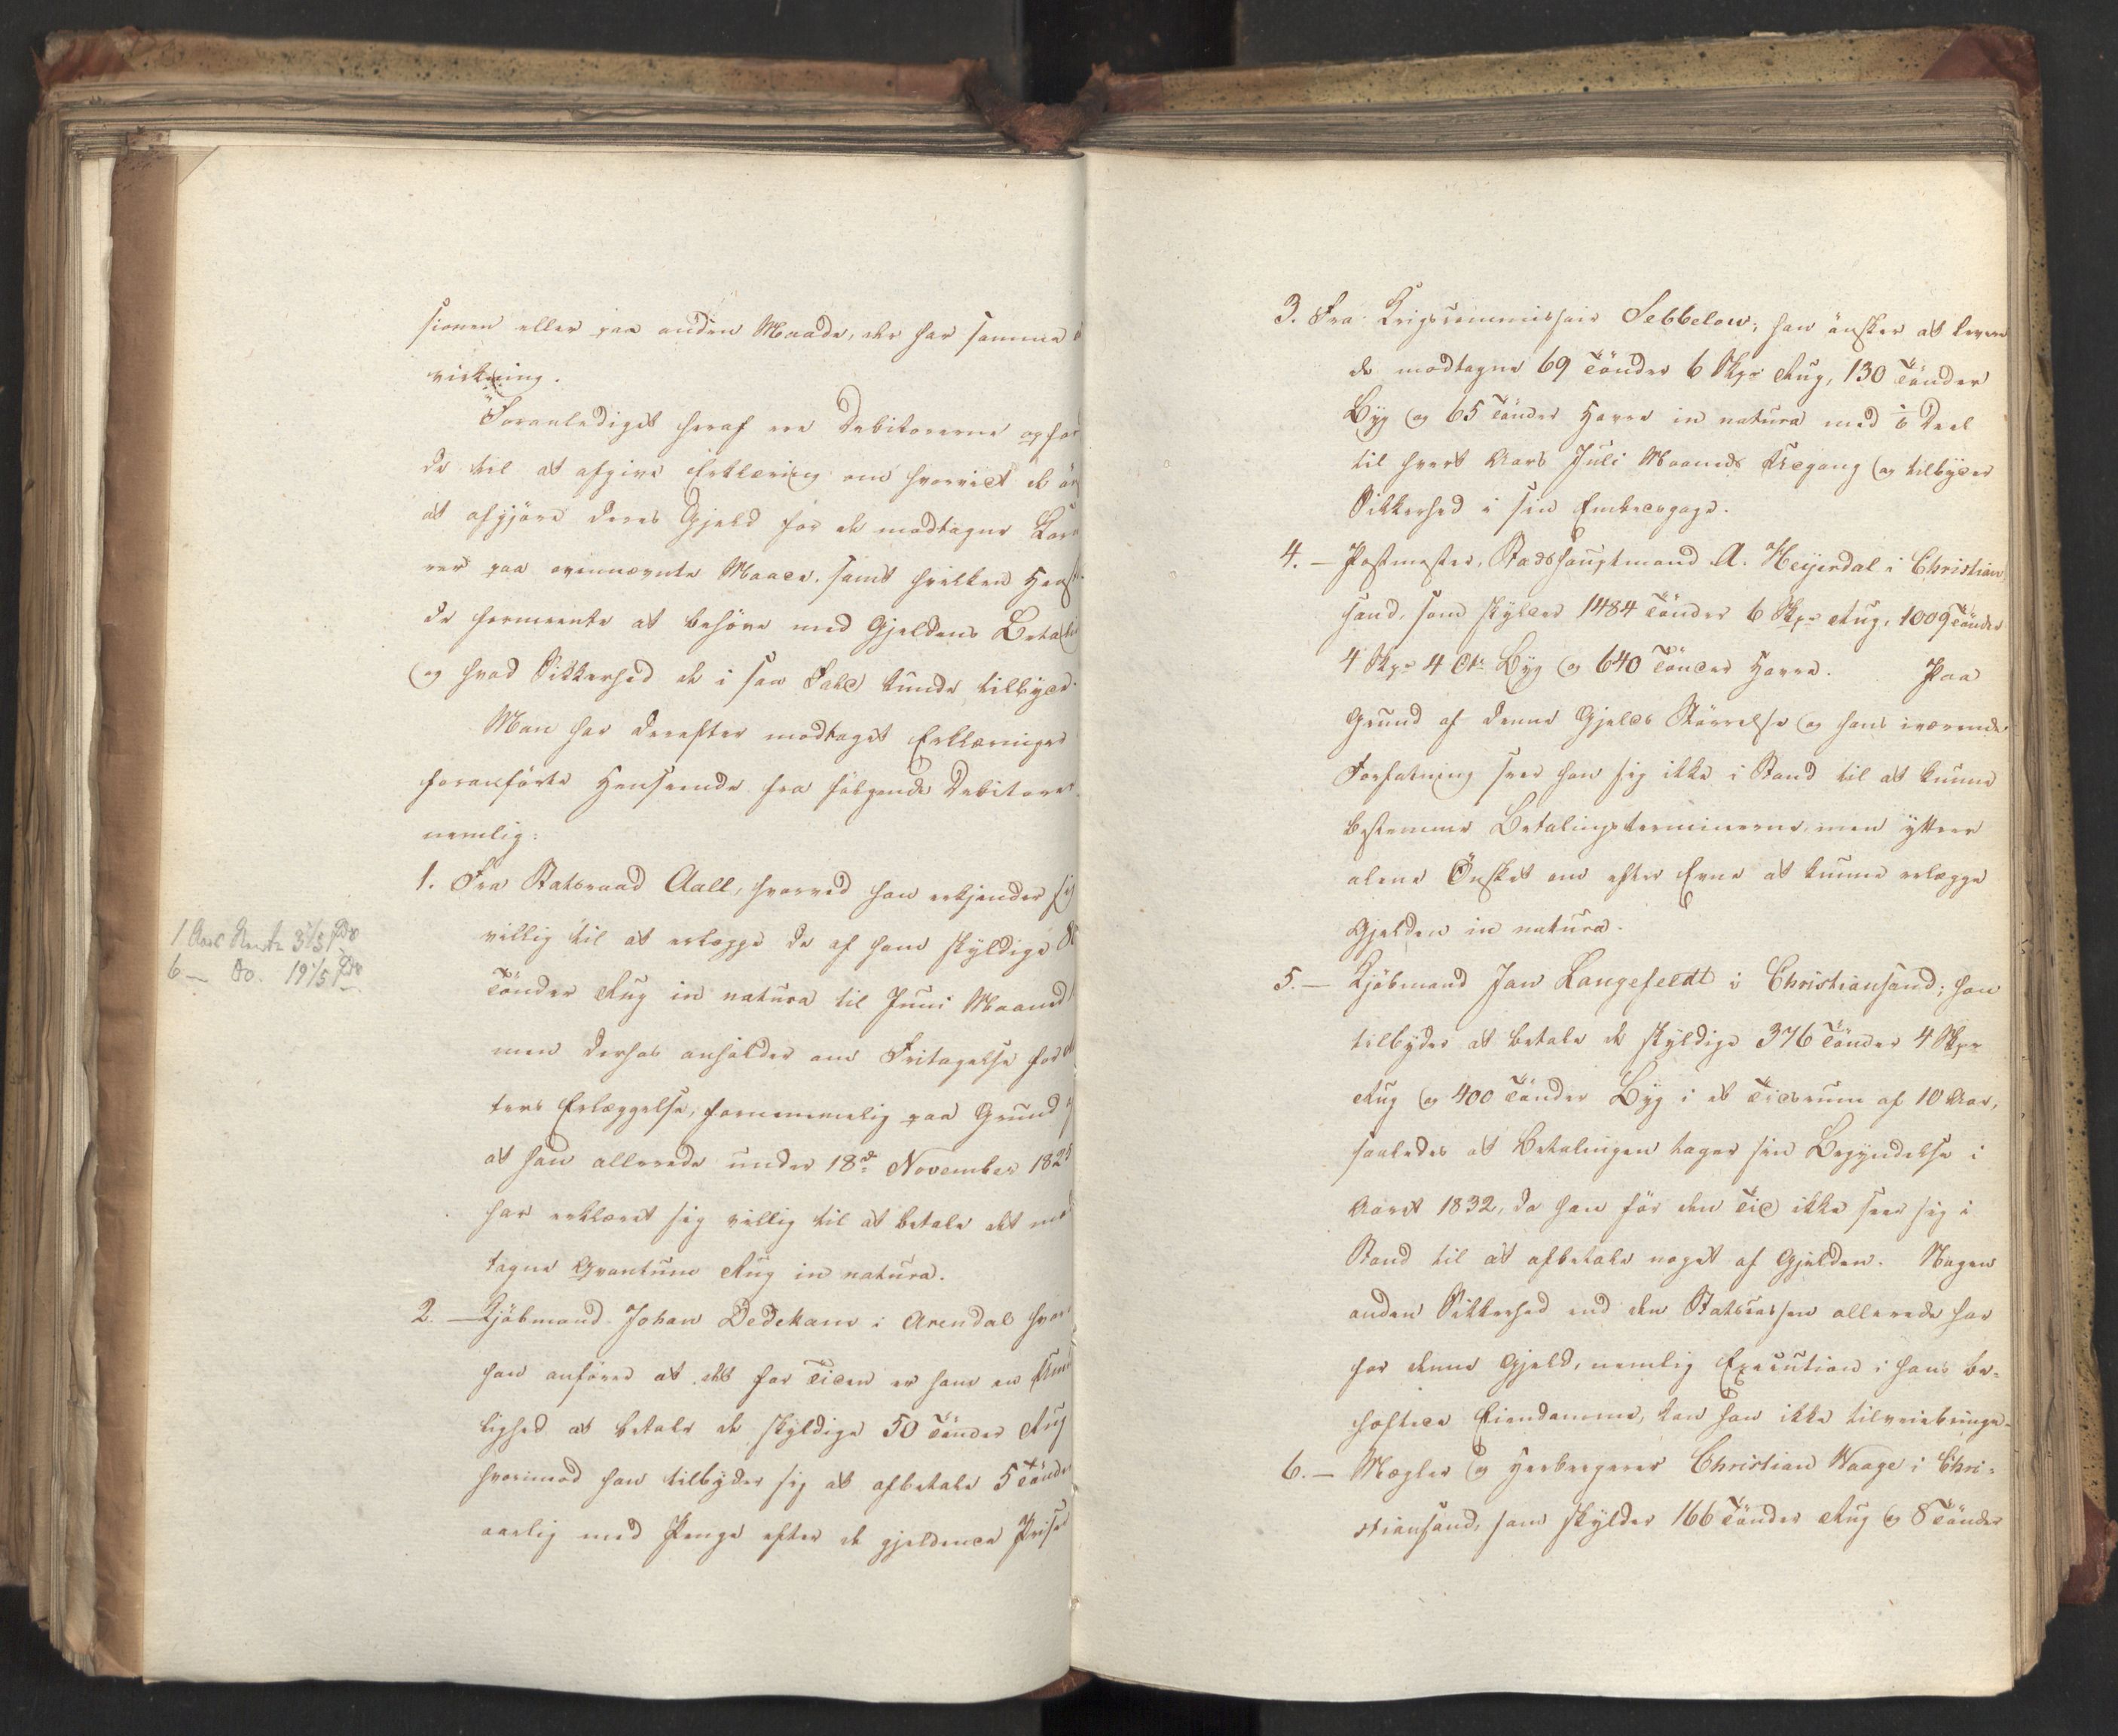 sionen eller paa anden Maade, der har samme
virkning.
Foranlediget heraf ere Debitorerne opfor
de til at afgive Erklæring om hvorvidt de øn
at afgjöre deres Gjeld for de modtagne Korn
rer paa ovennævnte Maade, samt hvilken Hen
de formeente at behöve med Gjeldens Betal
og hvad Sikkerhed de i saa Fald kunde tilbyde.
Man har derefter modtaget Erklæringer
foranförte Henseende fra fölgende Debitorer,
nemlig:
1. Fra Statsraad Aall, hvorved han erkjender sig
villig til at erlægge de af ham skyldige 8
Tönder Rug in natura til Juni Maaned
men derhos anholder om Fritagelse for
ters Erlæggelse, fornemmelig paa Grund af
at han allerede under 18de November 1825
har erklæret sig villig til at betale det mod
tagne Qvantum Rug in natura.
1 Aars Rente 3 1/5 Spd
6 — do. 19 1/5 Spd
2. — Kjöbmand Johan Dedekam i Arendal hvor
han anförer at det for Tiden er ham en Umu
lighed at betale de skyldige 50 Tönder Rug
hvorimod han tilbyder sig at afbetale 5 Tönder
aarlig med Penge efter de gjeldende Priser
3. Fra Krigscommissair Sebbelow; han önsker at levere
de modtagne 69 Tönder 6 Skpr Rug, 130 Tönder
Byg og 65 Tönder Havre in natura med 1/6 Deel
til hvert Aars Juli Maaneds Udgang og tilbyder
Sikkerhed i sin Embedsgage.
4. — Postmester, Stadshauptmand A. Heyerdal i Christian
sand, som skylder 1484 Tönder 6 Skpr Rug, 1009 Tönder
4 Skpr 4 Ott: Byg og 640 Tönder Havre. Paa
Grund af denne Gjelds Störrelse og hans iværende
Forfatning seer han sig ikke i Stand til at kunne
bestemme Betalingsterminerne, men yttrer
alene Önsket om efter Evne at kunne erlægge
Gjelden in natura.
5. — Kjöbmand Jan Langefeldt i Christiansand; han
tilbyder at betale de skyldige 376 Tönder 4 Skpr
Rug og 400 Tönder Byg i et Tidsrum af 10 Aar,
saaledes at Betalingen tager sin Begyndelse i
Aaret 1832, da han för den Tid ikke seer sig i
Stand til at afbetale noget af Gjelden. Nogen
anden Sikkerhed end den Statscassen allerede har
for denne Gjeld, nemlig Execution i hans be-
hæftede Eiendomme, kan han ikke tilveiebringe.
6. — Mægler og Herbergerer Christian Waage i Chri-
stiansand, som skylder 166 Tönder Rug og 8 Tönder